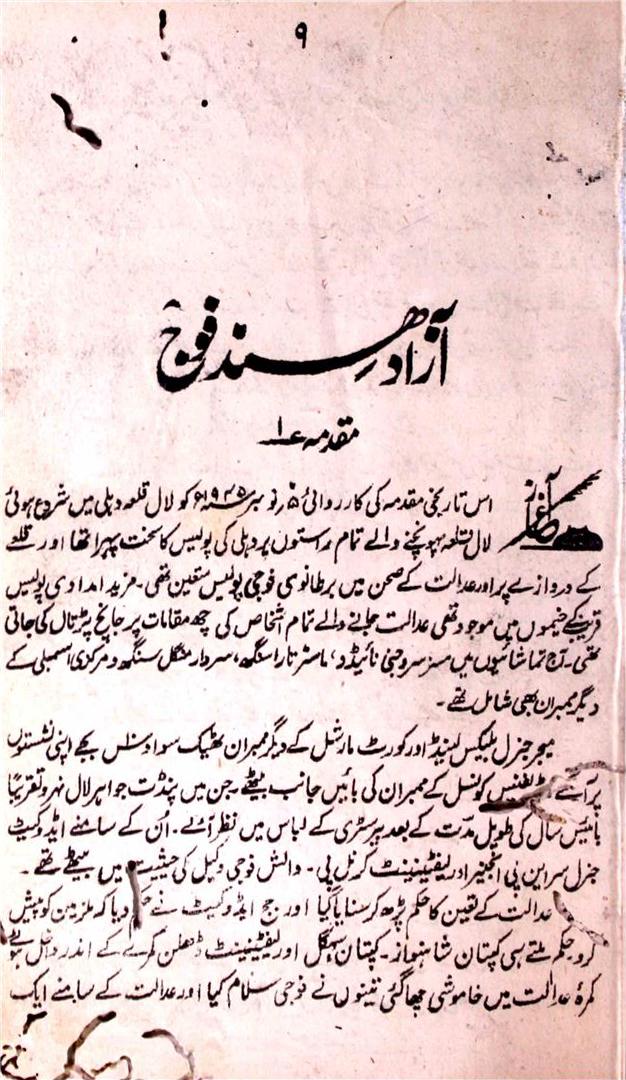 ۹
آزاد ہند فوج
مقدمہ ۱
آغاز
اس تاریخی مقدمہ کی کارروائی ۵ نومبر ۱۹۴۵ء کو لال قلعہ دہلی میں شروع ہوئی
لال قلعہ پہونچنے والے تمام راستوں پر دہلی کی پولیس کا سخت پہرا تھا اور قلعے
کے دروازے پر اور عدالت کے صحن میں برطانوی فوجی پولیس متعین تھی۔ مزید امدادی پولیس
قریب کے خیموں میں موجود تھی عدالت جانے والے تمام اشخاص کی چھ مقامات پر جانچ پڑتال کی جاتی
تھی۔ آج تماشائیوں میں مسز سروجنی نائیڈو، ماسٹر تارا سنگھ، سردار منگل سنگھ و مرکزی اسمبلی کے
دیگر ممبران بھی شامل تھے۔
میجر جنرل بلیکس لینڈ اور کورٹ مارشل کے دیگر ممبران ٹھیک سوا دس بجے اپنی نشستوں
پر آئے ڈیفنس کونسل کے ممبران کی بائیں جانب بیٹھے۔ جن میں پنڈت جواہر لال نہرو تقریباً
بائیس سال کی طویل مدّت کے بعد بیرسٹری کے لباس میں نظر آئے۔ اُن کے سامنے ایڈوکیٹ
جنرل سر این پی انجنیر اور لیفٹیننٹ کرنل پی۔ والش فوجی وکیل کی حیثیت میں بیٹھے تھے۔
عدالت کے تعین کا حکم پڑھ کر سنایا گیا اور جج ایڈوکیٹ نے حکم دیا کہ ملزمین کو پیش
کرو حکم ملتے ہی کپتان شاہنواز۔ کپتان سہگل اور لیفٹیننٹ ڈھلن کمرے کے اندر داخل ہوئے
کمرۂ عدالت میں خاموشی چھا گئی تینوں نے فوجی سلام کیا اور عدالت کے سامنے ایک